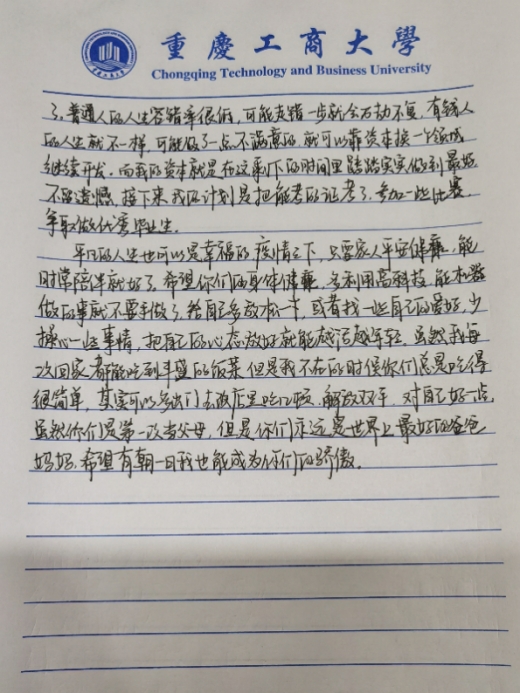 重慶工商大學
Chongqing Technology and Business University
了，普通人的人生容错率很低，可能走错一步就会万劫不复，有钱人
的人生就不一样，可能做了一点不满意的，就可以靠资本换一个领域
继续开始，而我的资本就是在这剩下的时间里踏踏实实做到最好
不留遗憾，接下来我的计划是把能考的证考了，参加一些比赛，
争取做优秀毕业生。
平凡的人生也可以是幸福的，疫情之下，只要家人平安健康，能
时常陪伴就好了，希望你们的身体健康，多利用高科技，能机器
做的事就不要手做了，给自己多放松一下，或者找一些自己的爱好，少
操心一些事情，把自己的心态放好就能越活越年轻，虽然我每
次回家都能吃到丰盛的饭菜，但是我不在的时候你们总是吃得
很简单，其实可以多出门去饭店里吃吃，解放双手，对自己好一点，
虽然你们是第一次当父母，但是你们永远是世界上最好的爸爸
妈妈，希望有朝一日我也能成为你们的骄傲。